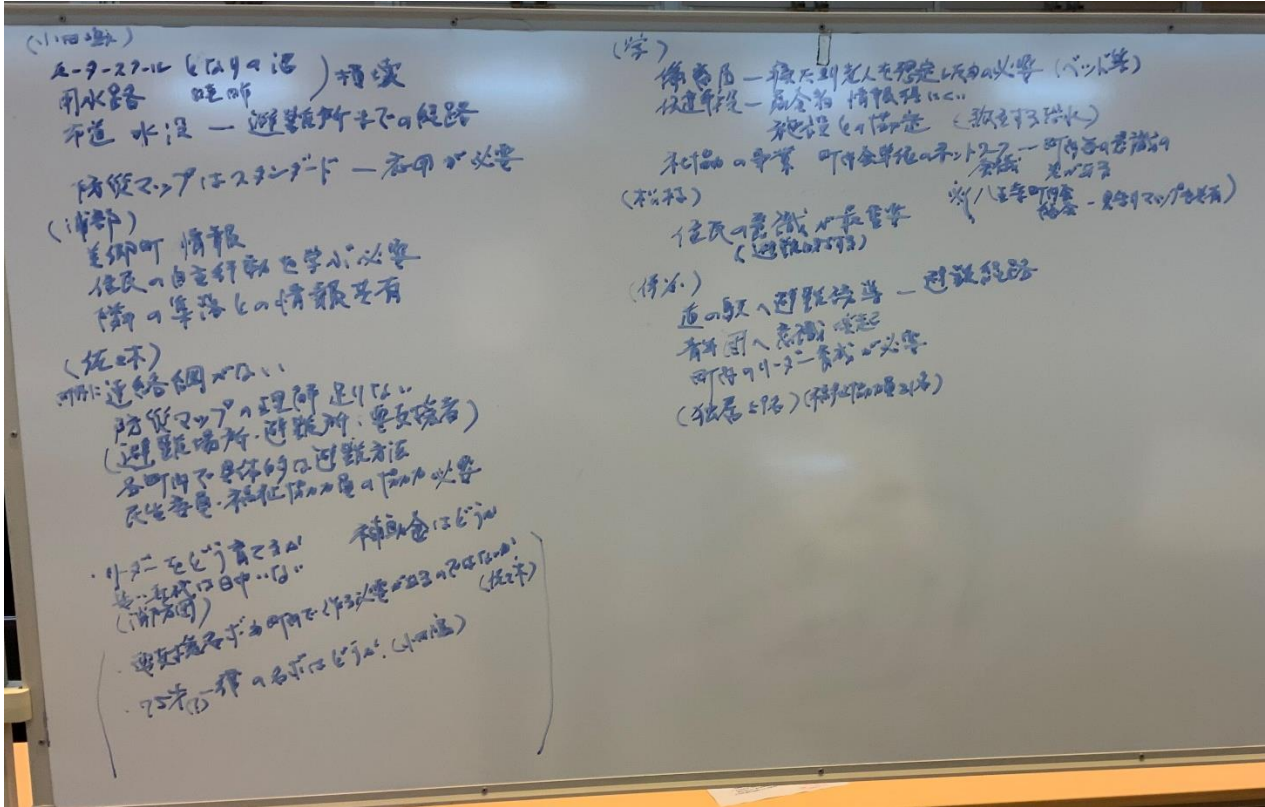 (小田嶋)
モータースクール となりの沼
用水路 ) 損壊
市道 水没 ― 避難所までの経路
防災マップはスタンダード ― 応用が必要
(浦部)
美郷町 情報
住民の自主行動を学ぶ必要
隣の集落との情報共有
(佐々木)
町内に連絡網がない
防災マップの理解足りない
(避難場所・避難所:要支援者)
各町内で具体的な避難方法
民生委員・福祉協力員の協力必要
・リーダーをどう育てるか 補助金はどうか
若い年代は日中いない
(消防団)
・要支援名ボを町内で作る必要が出るのではないか
(佐々木)
・75才(?)一律の名ボはどうか (小田嶋)
(学)
備蓄品 ― 寝たきり老人を想定したもの必要 (ベッド等)
伝達手段 ― 情報得にくい
施設との協定
社協の事業 町内会単位のネットワーク ― 町内毎の意識の
会議 差が出る
(松村)
住民の意識が最重要
(避難は)
道の駅へ避難誘導 ― 避難経路
青年団へ意識喚起
町内のリーダー育成が必要
(独居 名)(福祉協力員 名)